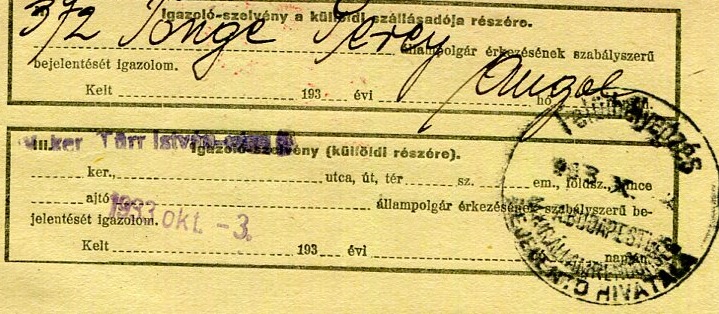 372 Tonge Percy
Igazoló-szelvény a külföldi szállásadója részére.
állampolgár érkezésének szabályszerű
bejelentését igazolom.
Angol
Kelt 193 évi hó napján.
ker Türr István-utca
Igazoló-szelvény (külföldi részére).
ker., utca, út, tér sz. em., földsz., pince
ajtó állampolgár érkezésének szabályszerű be-
jelentését igazolom.
1933 okt. -3.
Kelt 193 évi napján.
BUDAPESTI
BEJELENTŐ HIVATALA